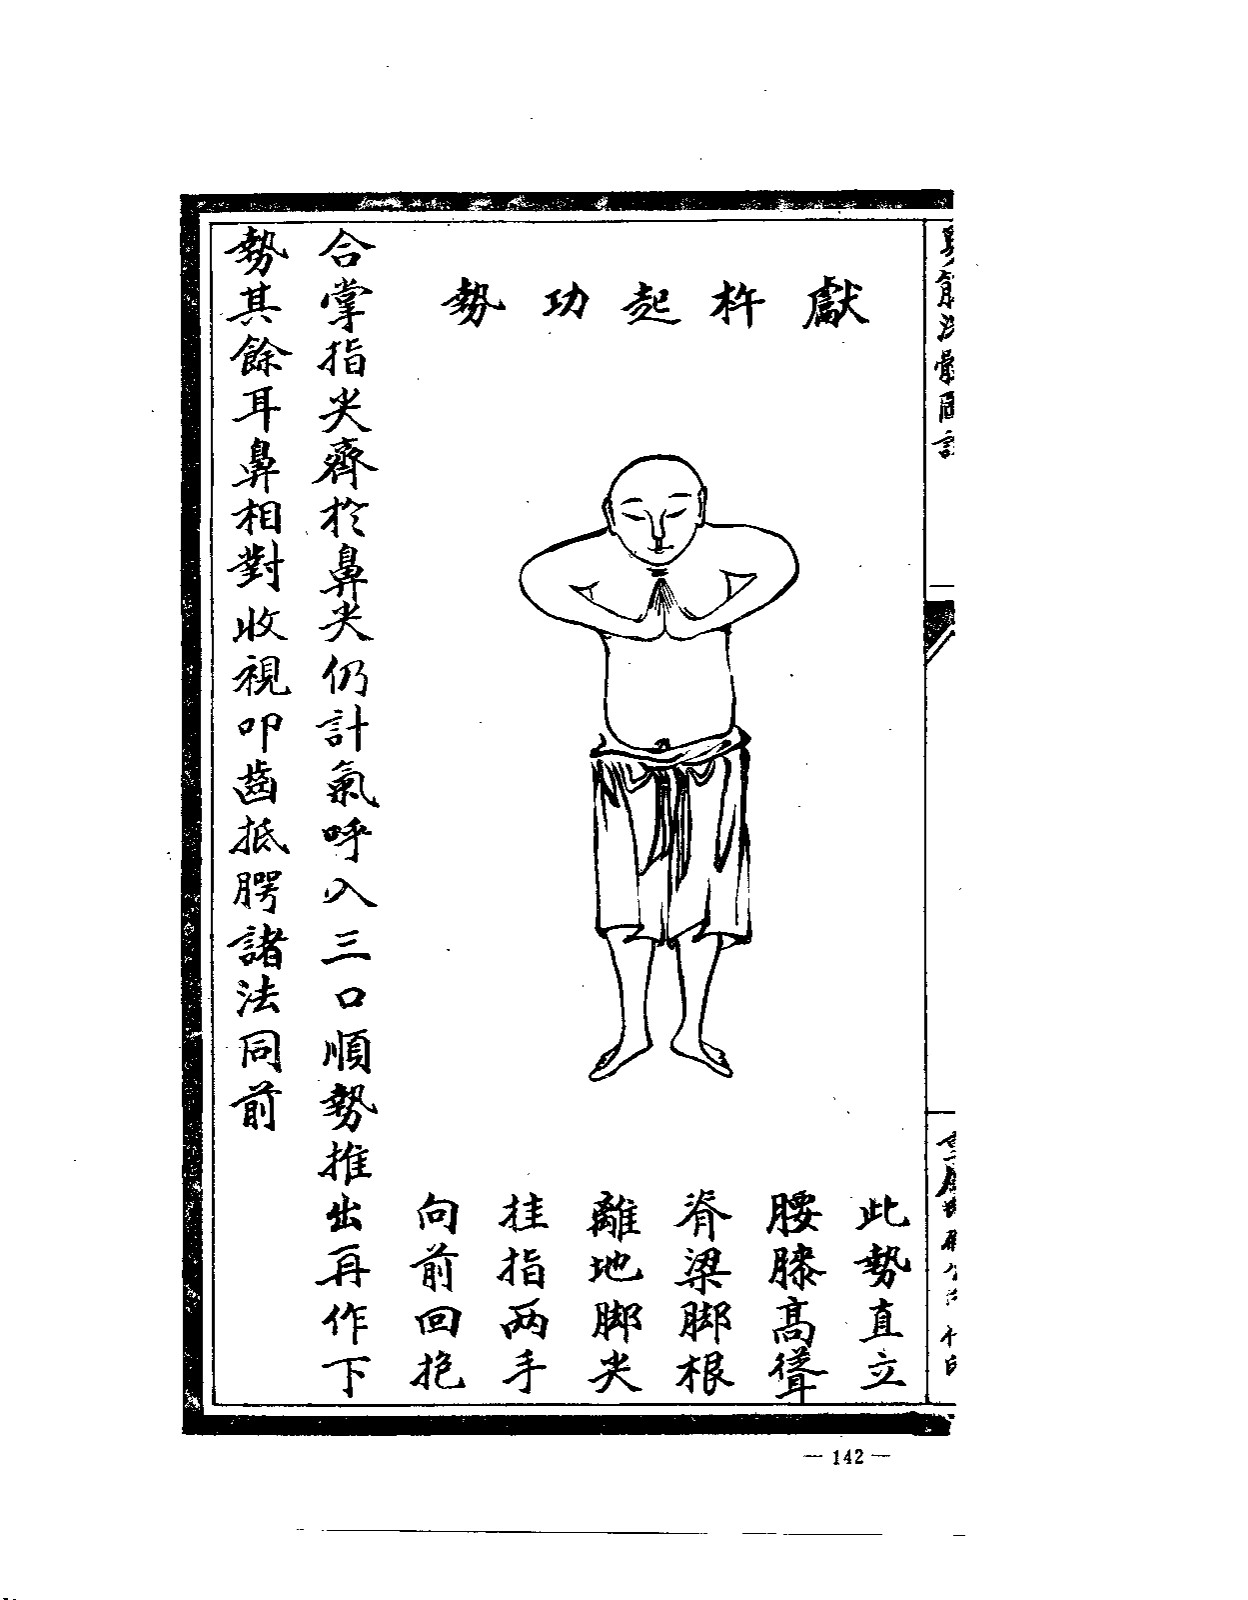 獻杵起功勢
此勢直立
腰膝高聳
脊梁脚根
離地脚尖
挂指两手
向前回抱
合掌指尖齊於鼻尖仍計氣呼入三口順勢推出再作下
勢其餘耳鼻相對收視叩齒抵腭諸法同前
— 142 —